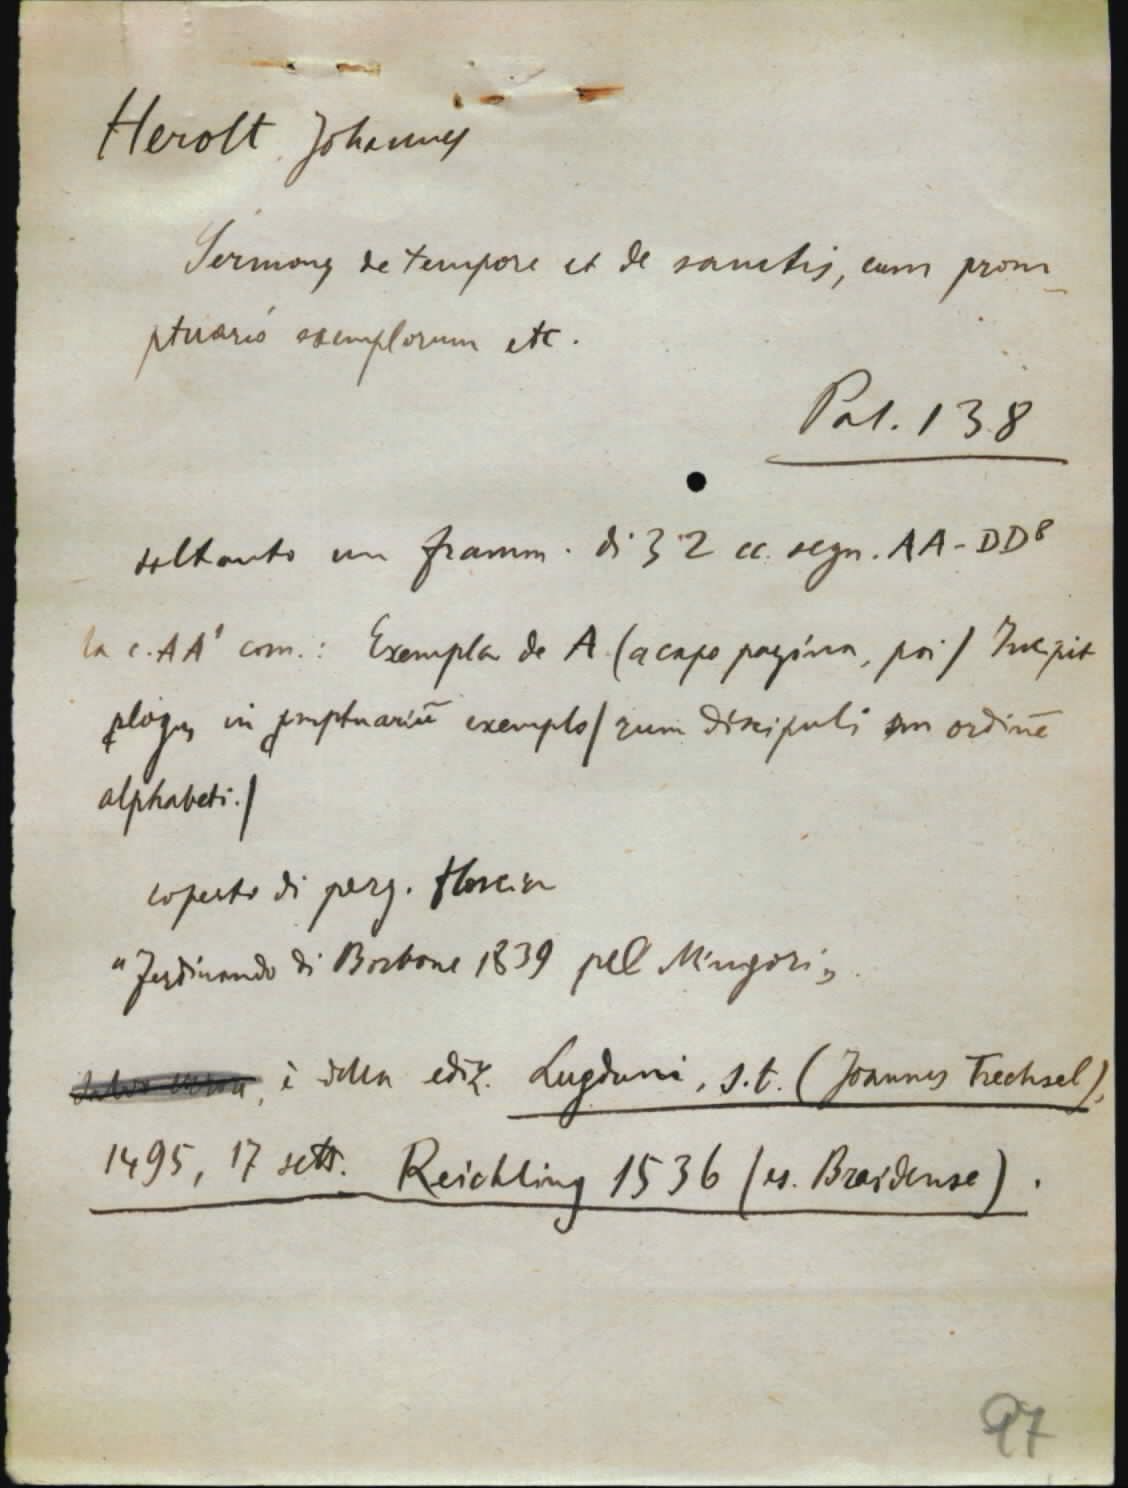 Herolt Johannes
Sermones de tempore et de sanctis, cum prom-
ptuario exemplorum etc.
Pal. 138
soltanto un framm. di 32 cc. segn. AA-DD⁸
la c. AA¹ com.: Exempla de A (a capo pagina, poi) Incipit
ꝓlogus in ꝓmptuariū exemplo/rum discipuli sm ordinē
alphabeti./
coperto di perg. floscia
"Ferdinando di Borbone 1839 pel Mingori"
è della ediz. Lugduni, s.t. (Joannes Trechsel),
1495, 17 sett. Reichling 1536 (es. Braidense).
97